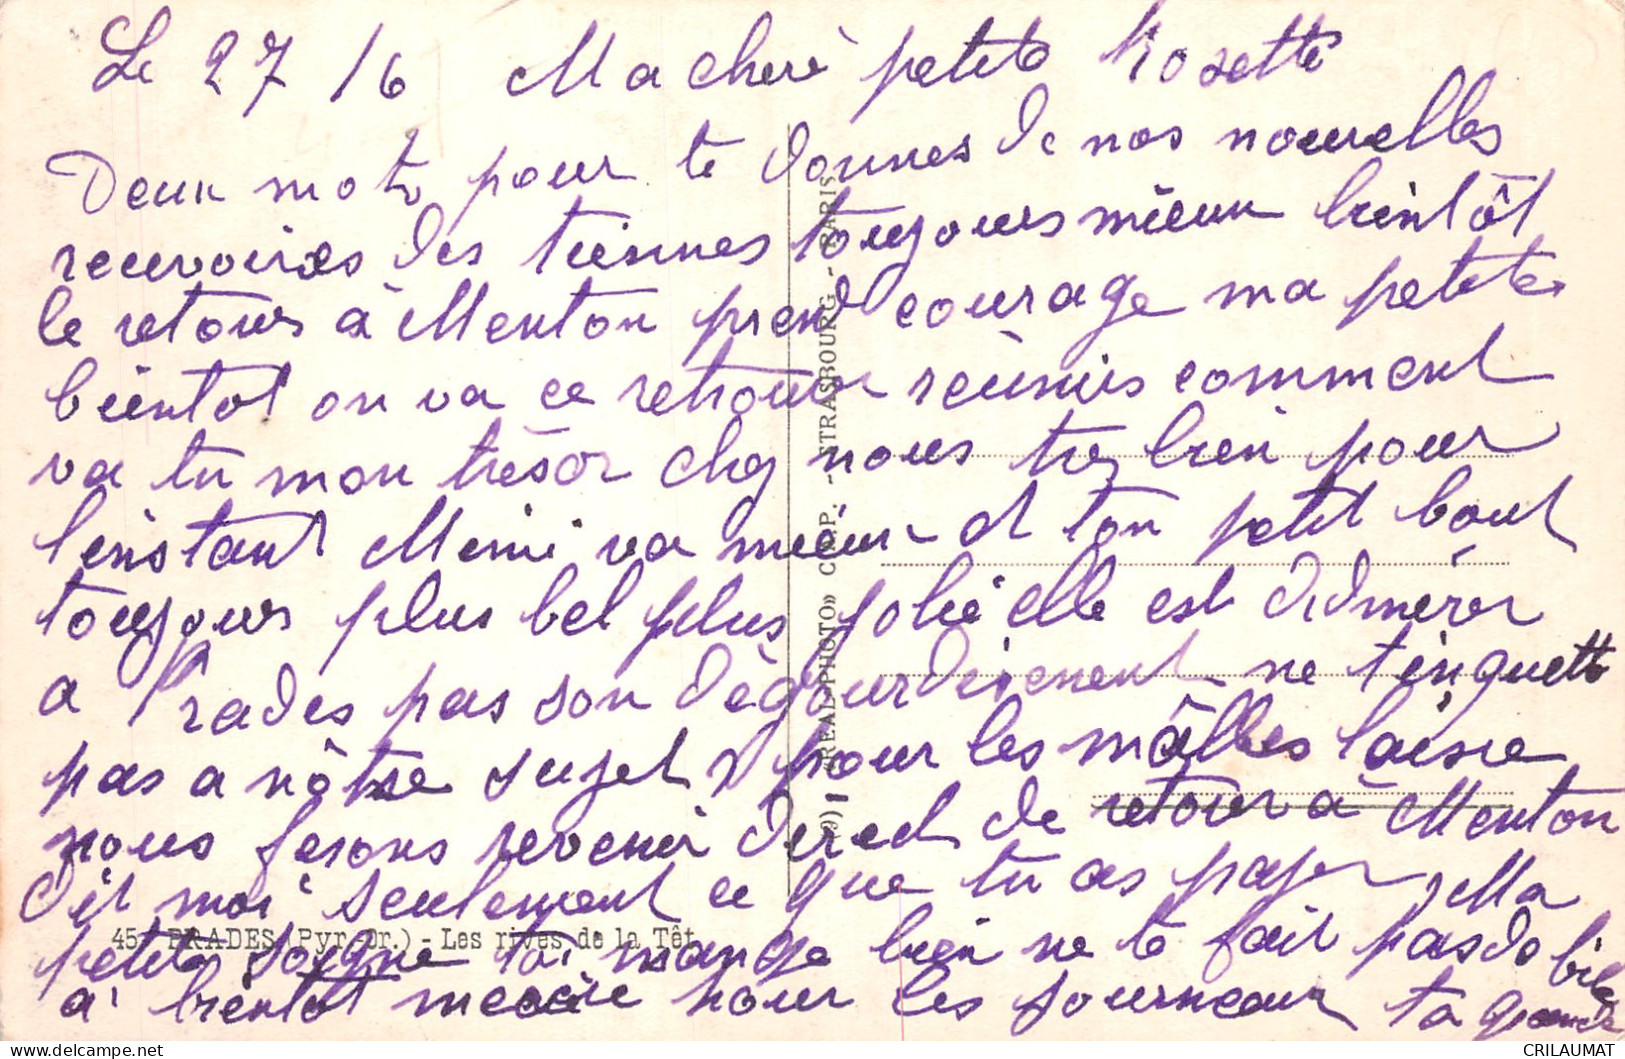 Le 27/6 Ma cheré petite Rosette
Deux mots pour te donnes de nos nouvelles
recuvoires des tiennes toujours mieux bientôt
le retours à Menton prend courage ma petite
bientot on va ce retrouve réunis comment
va tu mon trésor chez nous trez bien pour
l'instant Mimi va mieux et ton petit bout
toujours plus bel plus jolie elle est admirer
a Prades pas son dégourdisement ne t'enquette
pas a nôtre sujet pour les mâlles laisse
nous fesons revenir direct de retour à Menton
dit moi seulement ce que tu as payer, Ma
petite soigne toi mange bien ne te fait pas do bile
a' bientot merçie pour les journeaux ta grande
45 - PRADES (Pyr.-Or.) - Les rives de la Têt
(9) «REAL-PHOTO» C. A. P. - STRASBOURG - PARIS
CRILAUMAT